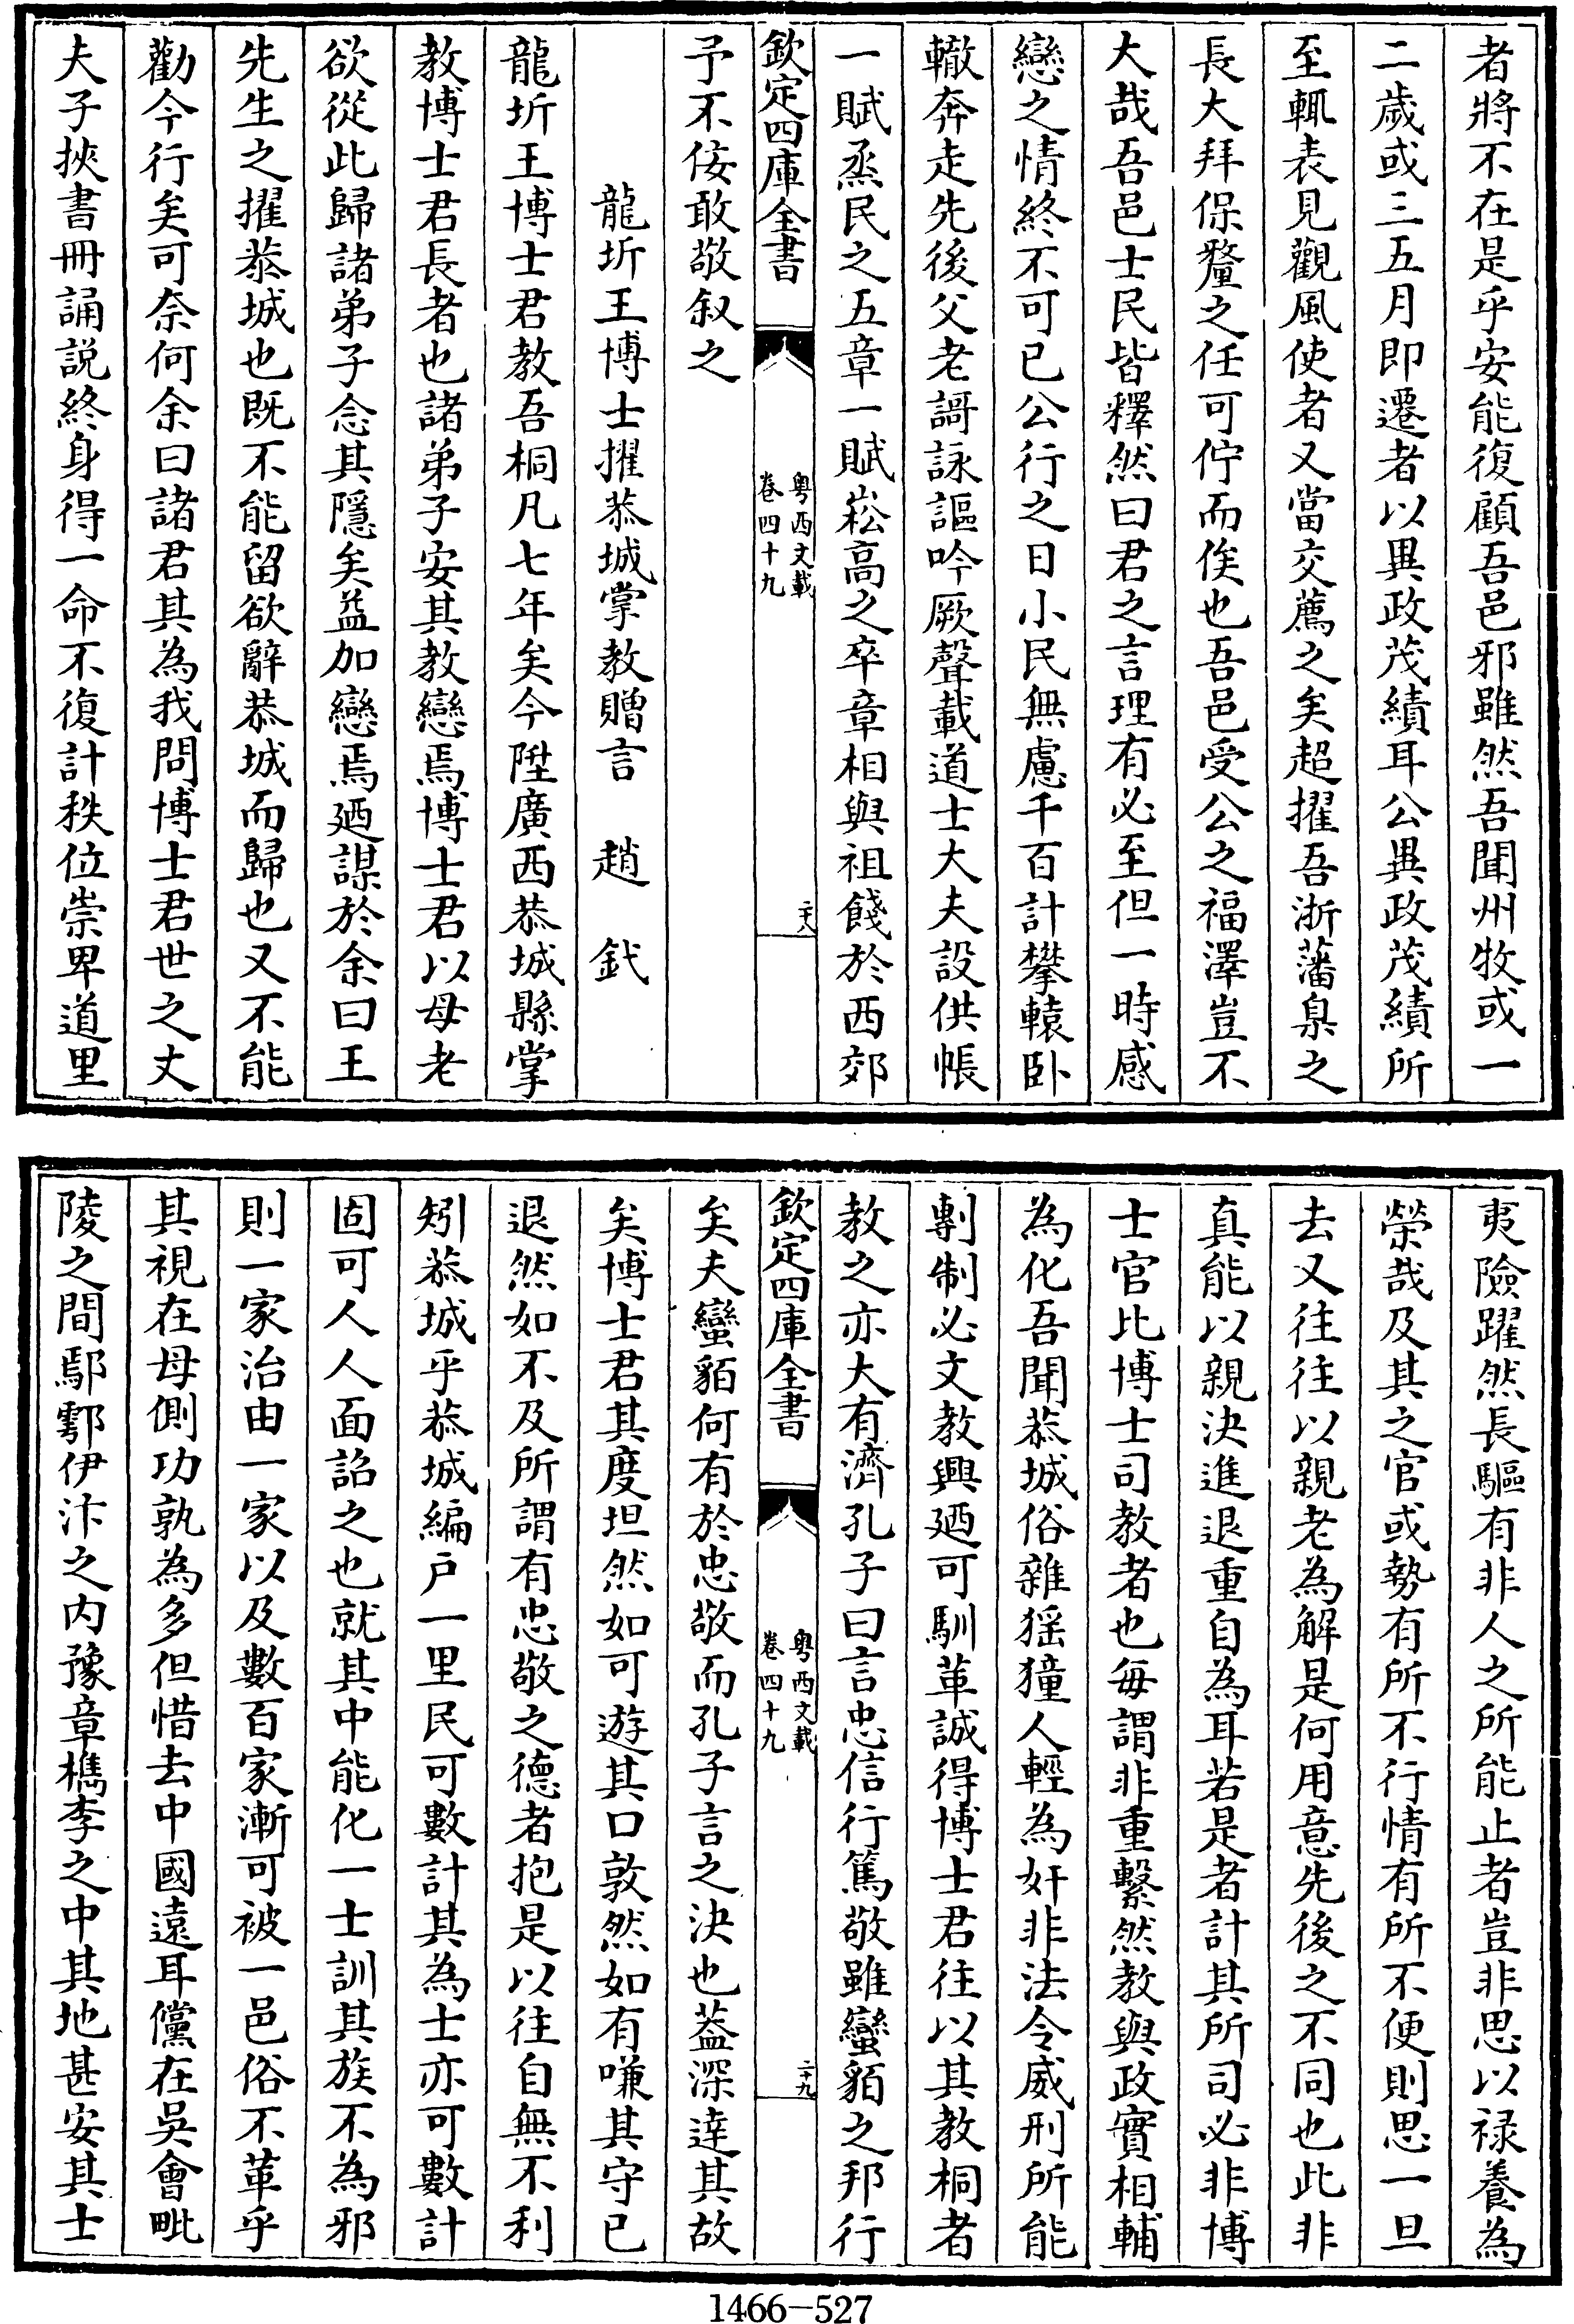 者將不在是乎安能復顧吾邑邪雖然吾聞州牧或一
二歲或三五月即遷者以異政茂績耳公異政茂績所
至輒表見觀風使者又當交薦之矣超擢吾浙藩臬之
長大拜保釐之任可佇而俟也吾邑受公之福澤豈不
大哉吾邑士民皆釋然曰君之言理有必至但一時感
戀之情終不可已公行之日小民無慮千百計攀轅卧
轍奔走先後父老謌詠謳吟厥聲載道士大夫設供帳
一賦烝民之五章一賦崧高之卒章相與祖餞於西郊
欽定四庫全書
粤西文載
卷四十九
二十八
予不佞敢敬叙之
龍圻王博士擢恭城掌教贈言 趙 釴
龍圻王博士君教吾桐凡七年矣今陞廣西恭城縣掌
教博士君長者也諸弟子安其教戀焉博士君以母老
欲從此歸諸弟子念其隱矣益加戀焉廼謀於余曰王
先生之擢恭城也既不能留欲辭恭城而歸也又不能
勸今行矣可奈何余曰諸君其為我問博士君世之丈
夫子挾書冊誦説終身得一命不復計秩位崇卑道里
夷險躍然長驅有非人之所能止者豈非思以禄養為
榮哉及其之官或勢有所不行情有所不便則思一旦
去又往往以親老為解是何用意先後之不同也此非
真能以親決進退重自為耳若是者計其所司必非博
士官比博士司教者也每謂非重繫然教與政實相輔
為化吾聞恭城俗雜猺獞人輕為奸非法令威刑所能
剸制必文教興廼可馴革誠得博士君往以其教桐者
教之亦大有濟孔子曰言忠信行篤敬雖蠻貊之邦行
欽定四庫全書
粤西文載
卷四十九
二十九
矣夫蠻貊何有於忠敬而孔子言之決也葢深達其故
矣博士君其度坦然如可遊其口敦然如有嗛其守已
退然如不及所謂有忠敬之德者抱是以往自無不利
矧恭城乎恭城編户一里民可數計其為士亦可數計
固可人人面詔之也就其中能化一士訓其族不為邪
則一家治由一家以及數百家漸可被一邑俗不革乎
其視在母側功孰為多但惜去中國遠耳儻在吳會毗
陵之間鄢鄠伊汴之内豫章檇李之中其地甚安其士
1466-527